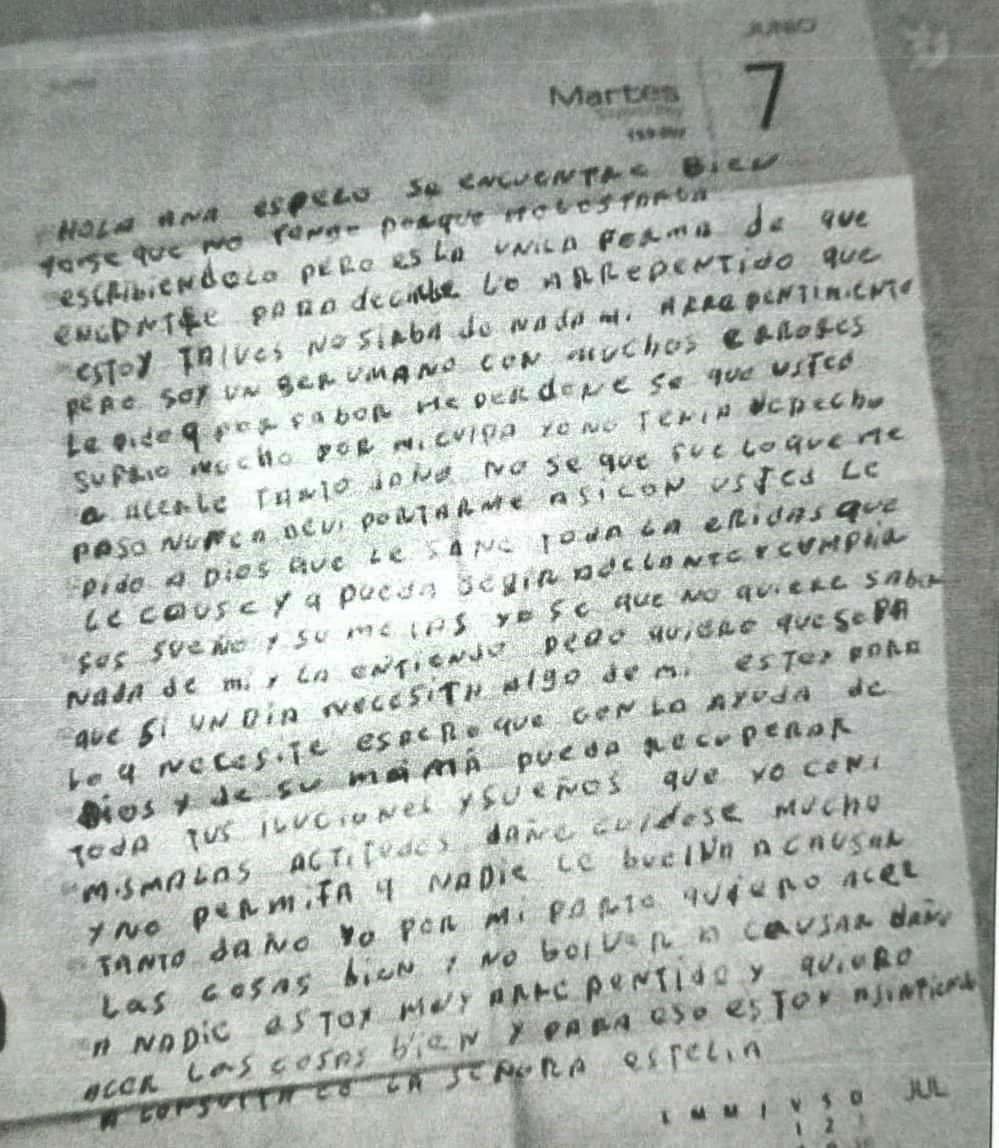 JUNIO
Martes 7
HOLA ANA ESPERO SE ENCUENTRE BIEN
YO SE QUE NO TENGO PORQUE MOLESTARLA
ESCRIBIENDOLO PERO ES LA UNICA FORMA DE QUE
ENCONTRE PARA DECIRLE LO ARREPENTIDO QUE
ESTOY TALVES NO SIRBA DE NADA MI ARREPENTIMIENTO
PERO SOY UN SER UMANO CON MUCHOS ERRORES
LE PIDO Q POR FABOR ME PERDONE SE QUE USTED
SUFRIO MUCHO POR MI CULPA YO NO TENIA DEPECHO
A ACERLE TANTO DAÑO NO SE QUE FUE LO QUE ME
PASO NUNCA DEVI PORTARME ASI CON USTED LE
PIDO A DIOS QUE LE SANE TODA LA ERIDAS QUE
LE CAUSE Y Q PUEDA SEGIR ADELANTE Y CUMPLIR
SUS SUEÑO Y SU METAS YO SE QUE NO QUIERE SABER
NADA DE MI Y LA ENTIENDO PERO QUIERO QUE SEPA
QUE SI UN DIA NECESITA ALGO DE MI ESTOY PARA
LO Q NECESITE ESPERO QUE CON LA AYUDA DE
DIOS Y DE SU MAMÁ PUEDA RECUPERAR
TODA TUS ILUCIONES Y SUEÑOS QUE YO CON
MIS MALAS ACTITUDES DAÑE CUIDESE MUCHO
Y NO PERMITA Q NADIE LE BUELVA A CAUSAR
TANTO DAÑO YO POR MI PARTE QUIERO ACER
LAS COSAS BIEN Y NO BOLVER A CAUSAR DAÑO
A NADIE ESTOY MUY ARREPENTIDO Y QUIERO
ACER LAS COSAS BIEN Y PARA ESO ESTOY ASINTIENDO
A CONSULTA LA SEÑORA
JUL
L M M J V S D
1 2